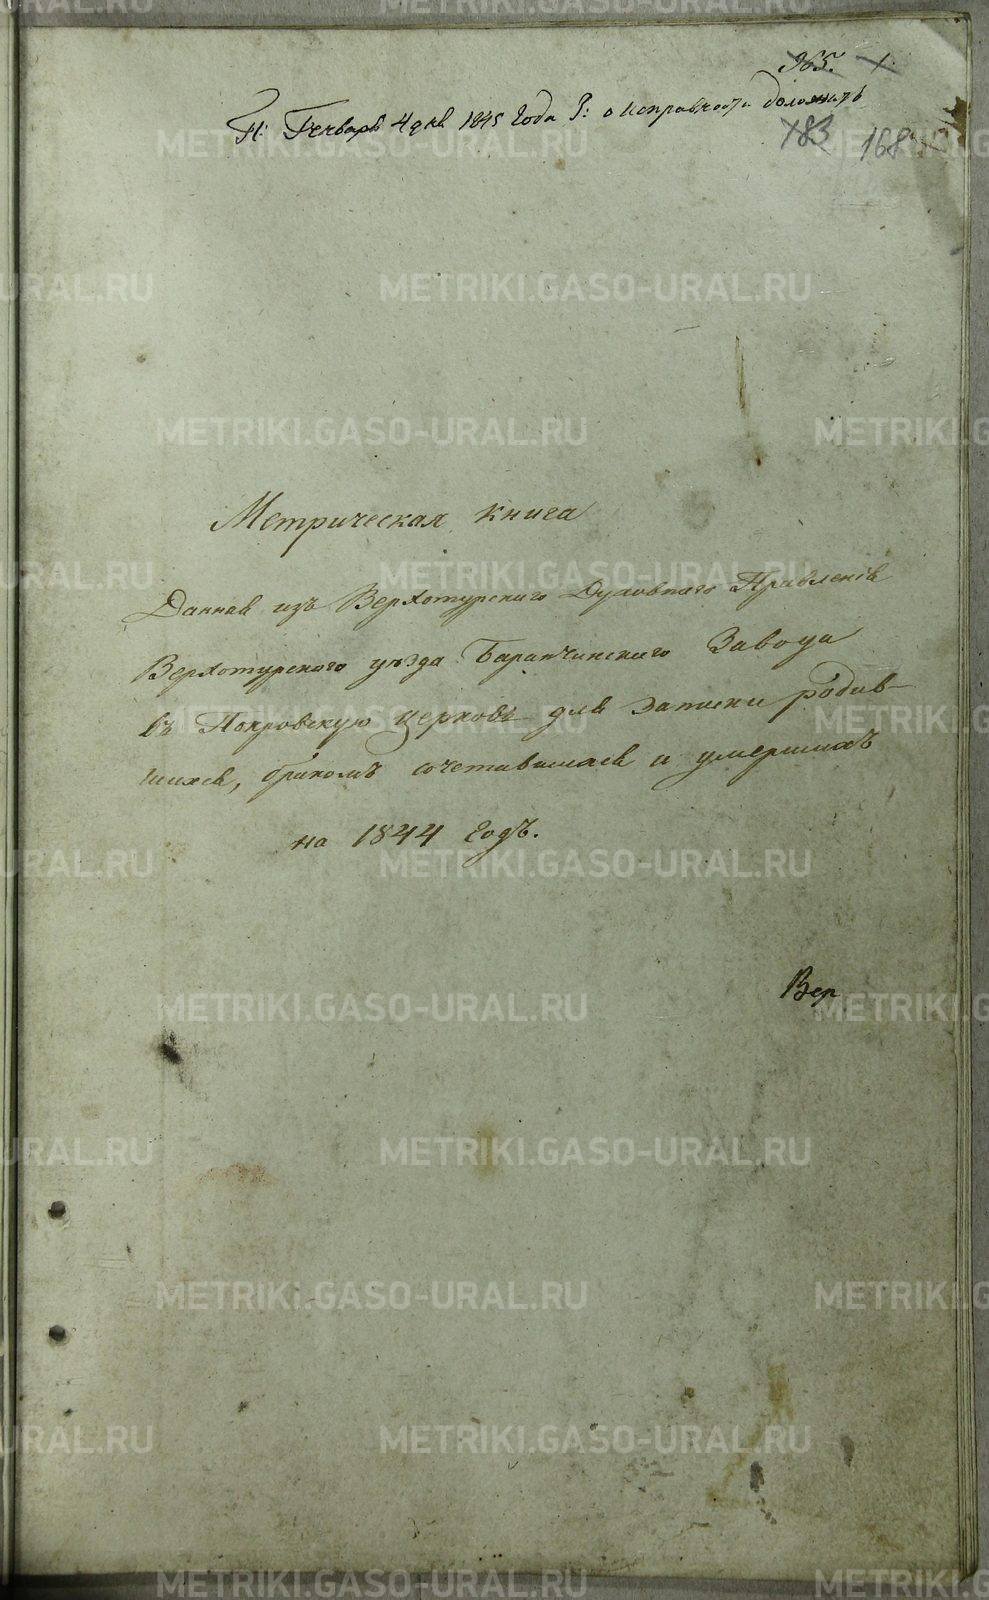 365. 1.
П: Генваря 4 дня 1845 Года Р: о исправности доложить
183 168
Метрическая книга
Данная изъ Верхотурскаго Духовнаго Правленія
Верхотурскаго уѣзда Баранчинскаго Завода
въ Покровскую церковь для записки родив-
шихся, бракомъ сочетавшихся и умершихъ
на 1844 Годъ.
Вер
METRIKI.GASO-URAL.RU